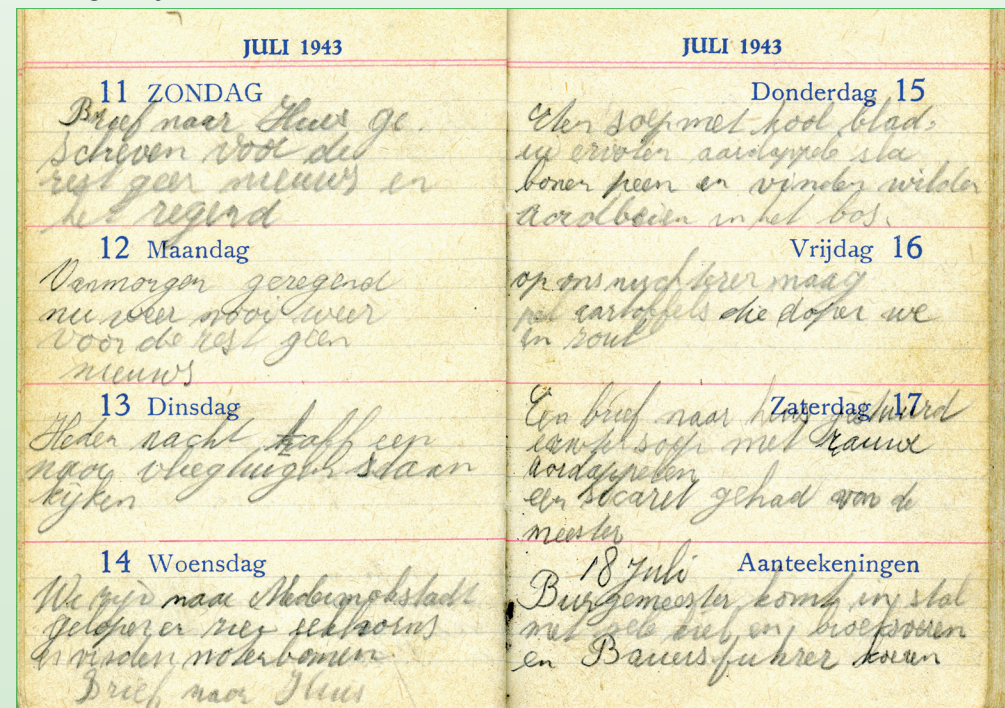 JULI 1943
11 ZONDAG
Brief naar Huis ge.
schreven voor de
rest geen nieuws en
het regend
12 Maandag
Vanmorgen geregend
nu weer mooi weer
voor de rest geen
nieuws
13 Dinsdag
Heden nacht half een
naar vliegtuigen staan
kijken
14 Woensdag
We zijn naar
gelopen en zien eekhorns
en vinden notenbomen
Brief naar Huis
JULI 1943
Donderdag 15
Eten soep met kool blad,
en erwten aardappels sla
bonen peen en vinden wilden
Aardbeien in het bos.
Vrijdag 16
op ons nuchteren maag
cartoffels die dopen we
in zout
Zaterdag 17
Een brief naar huis gestuurd
soep met rauwe
aardappelen
een sicaret gehad van de
meester
Aanteekeningen
18 Juli
Burgemeester komt in stal
met en
en Bauersfuhrer